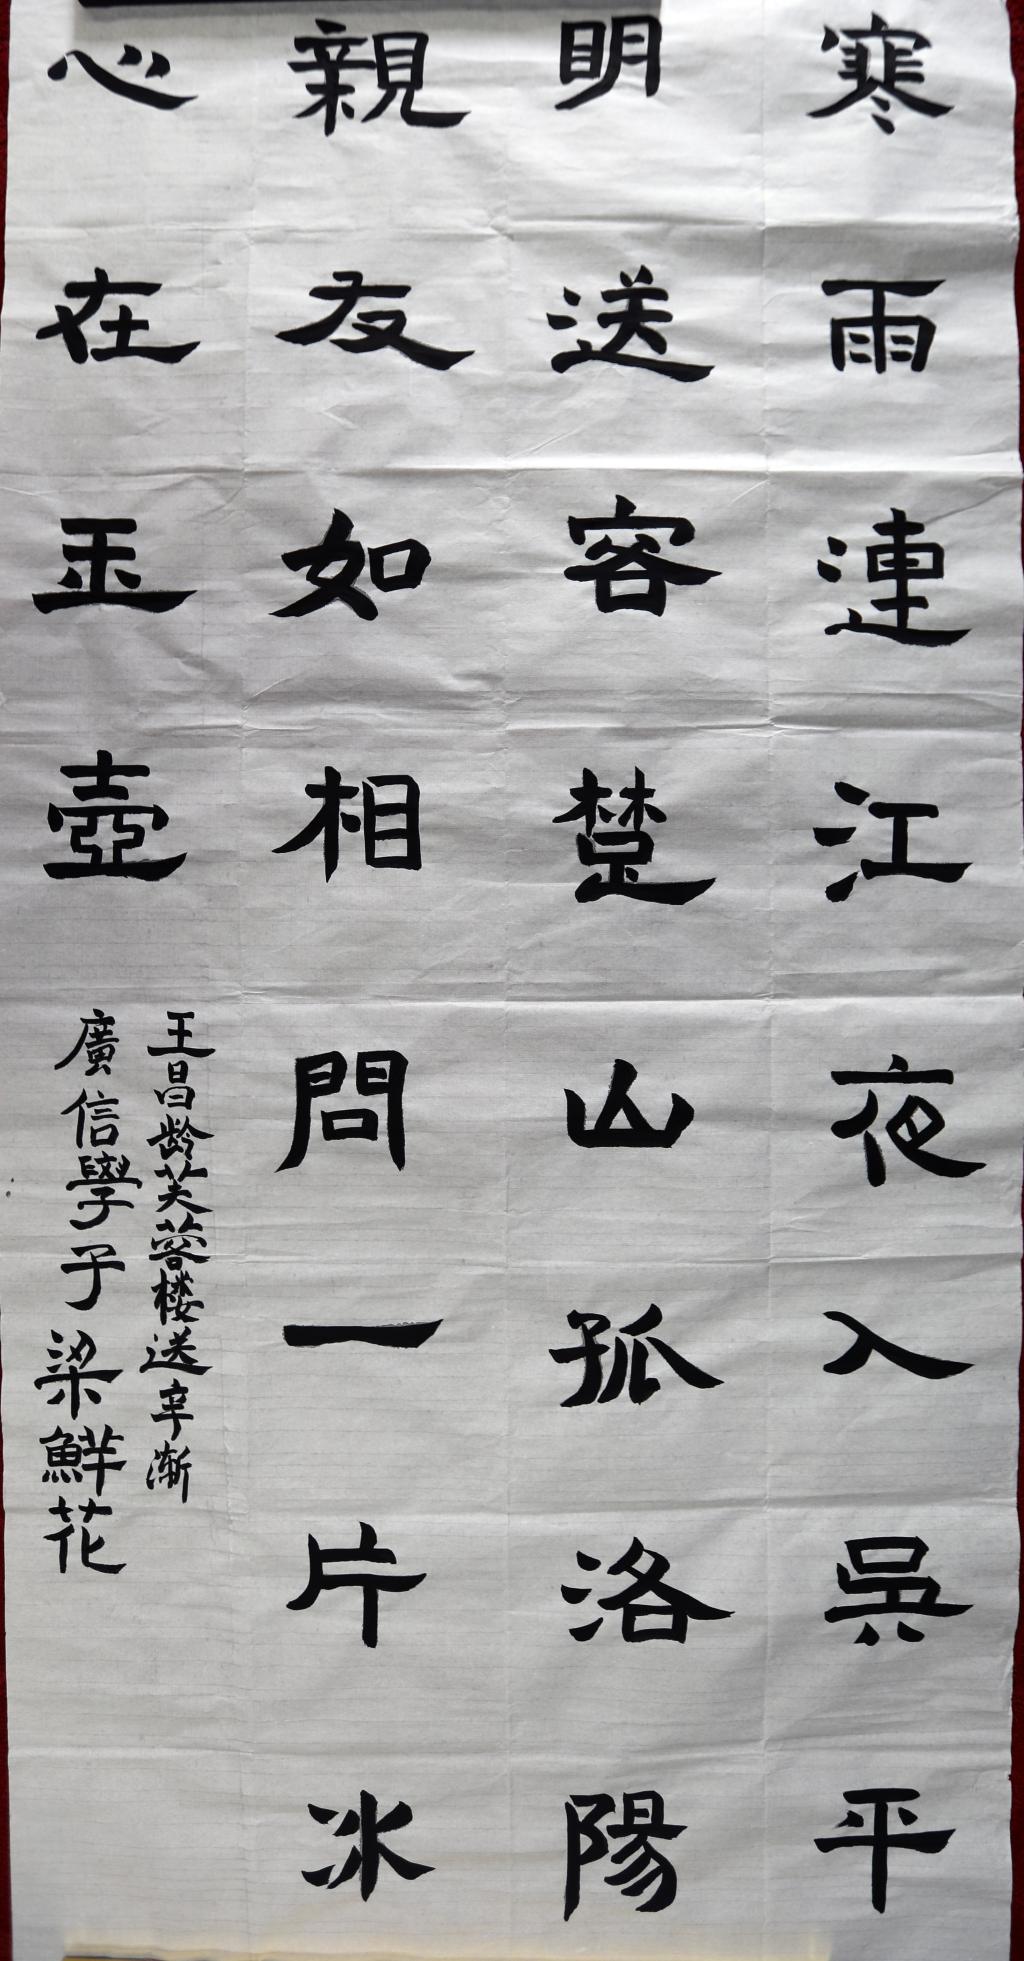 寒雨連江夜入吳平
明送容楚山孤洛陽
親友如相問一片冰
心在玉壺
王昌龄芙蓉楼送辛渐
廣信學子梁鮮花